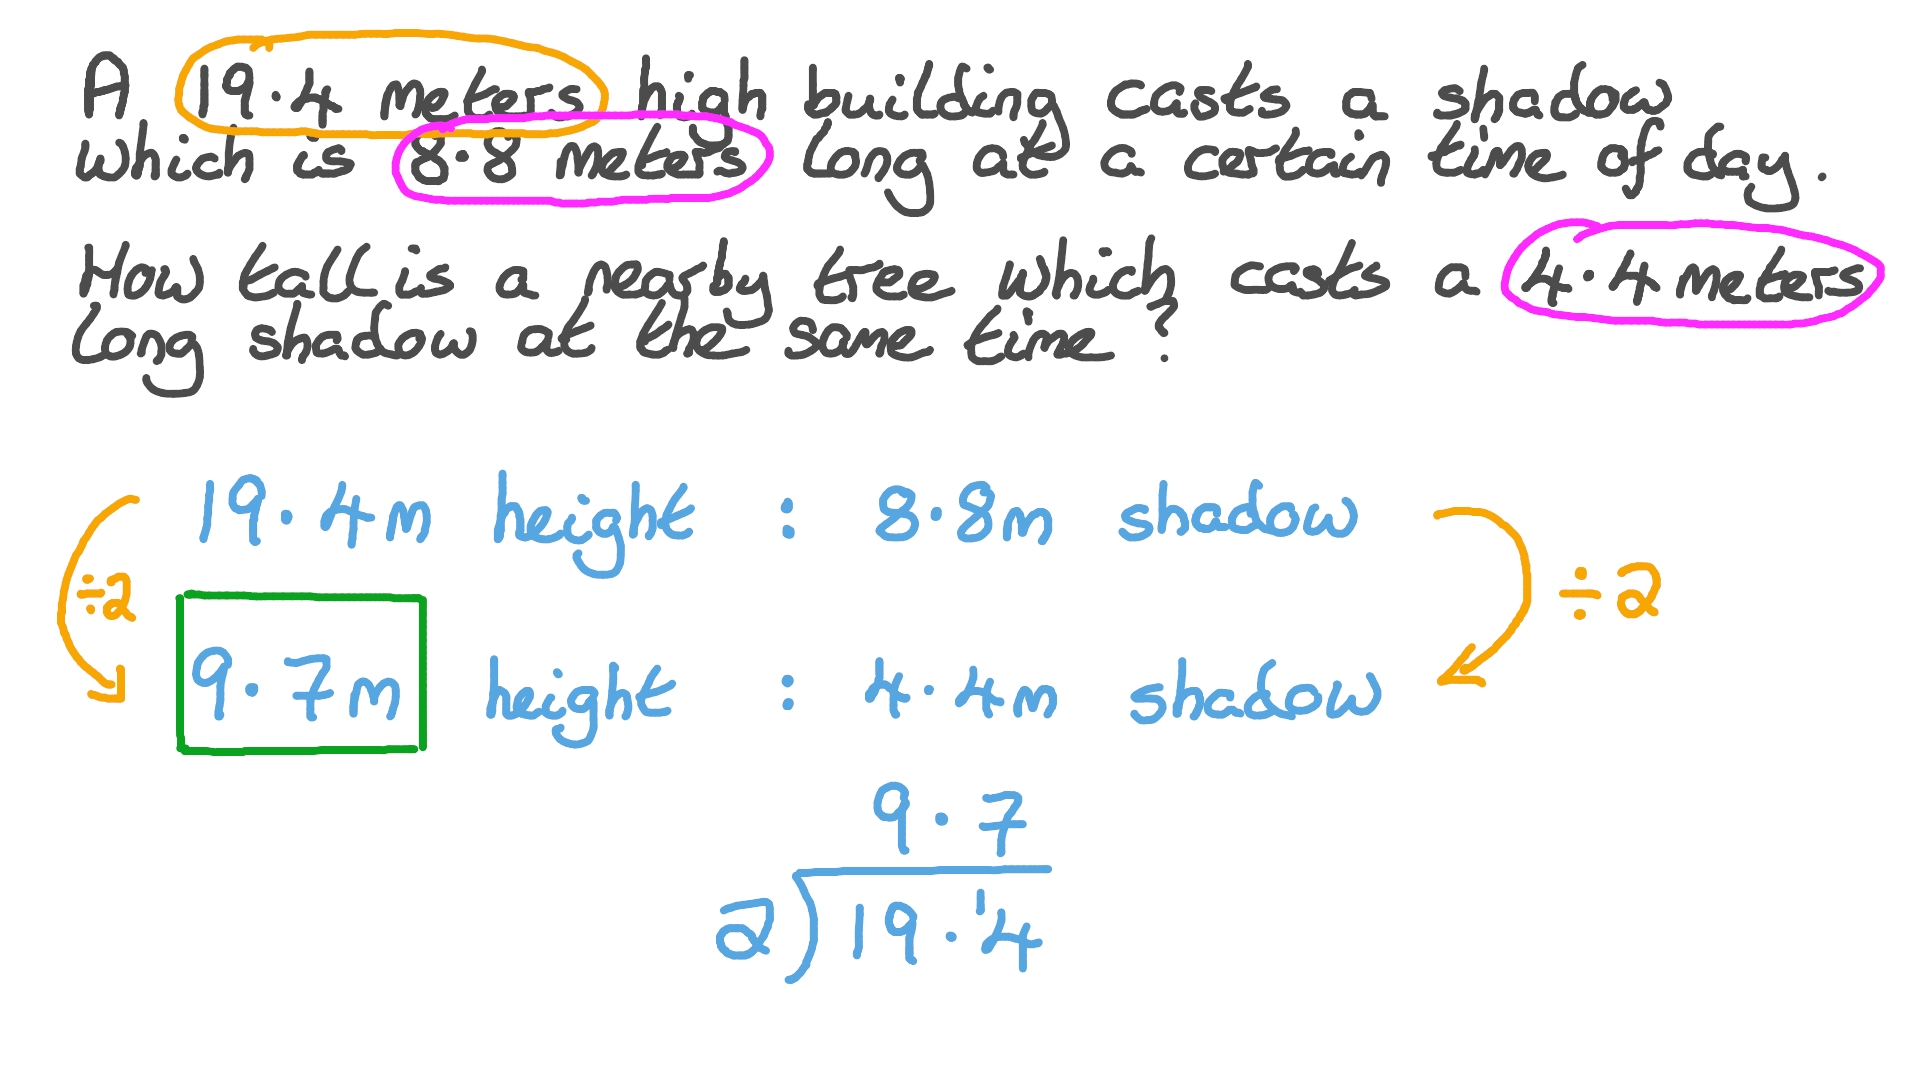 A 19.4 meters high building casts a shadow
which is 8.8 meters long at a certain time of day.
How tall is a nearby tree which casts a 4.4 meters
long shadow at the same time?
19.4m height : 8.8m shadow
÷2 ÷2
9.7m height : 4.4m shadow
9.7
2)19.¹4